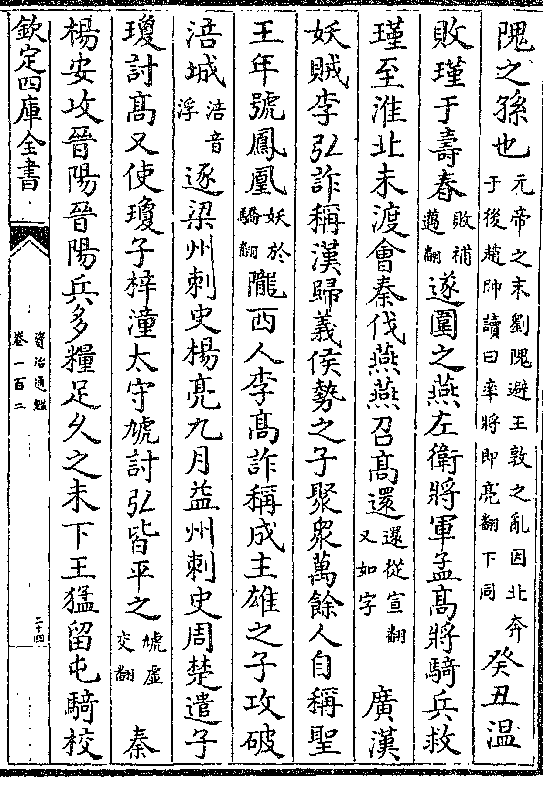 隗之孫也元帝之末劉隗避王敦之亂因北奔于後趙帥讀曰率將即亮翻下同癸丑温
敗瑾于壽春敗補邁翻遂圍之燕左衛將軍孟高將騎兵救
瑾至淮北未渡會秦伐燕燕召高還還從宣翻又如字廣漢
妖賊李弘詐稱漢歸義侯勢之子聚衆萬餘人自稱聖
王年號鳳凰妖於驕翻隴西人李高詐稱成主雄之子攻破
涪城涪音浮逐梁州刺史楊亮九月益州刺史周楚遣子
瓊討高又使瓊子梓潼太守虓討弘皆平之虓虛交翻秦
楊安攻晉陽晉陽兵多糧足久之未下王猛留屯騎校
欽定四庫全書
資治通鑑
卷一百二
二十四